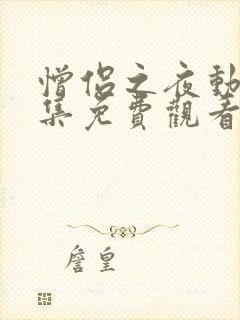 憎侶之夜動
集免費觀看
詹皇